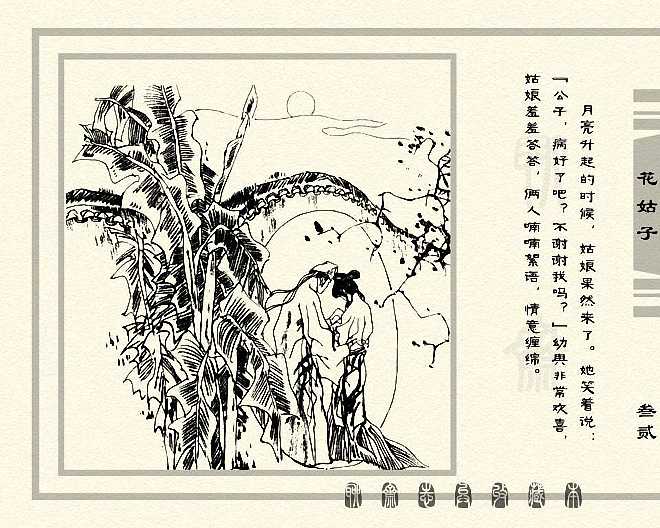 月亮升起的时候，姑娘果然来了。她笑着说：
“公子，病好了吧？不谢谢我吗？”幼舆非常欢喜，
姑娘羞羞答答，俩人喃喃絮语，情意缠绵。
花姑子
叁贰
聊斋志异收藏本